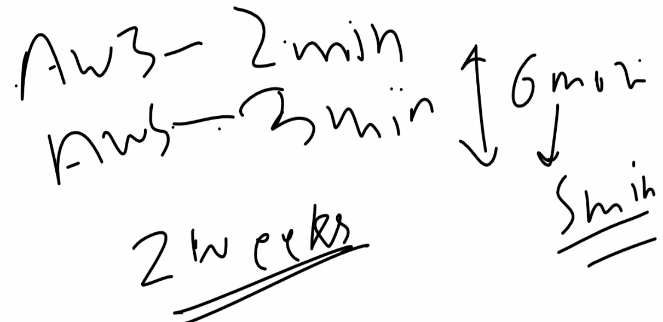 AWS - 2 min
AWS - 3 min
6 mon
5 min
2 weeks